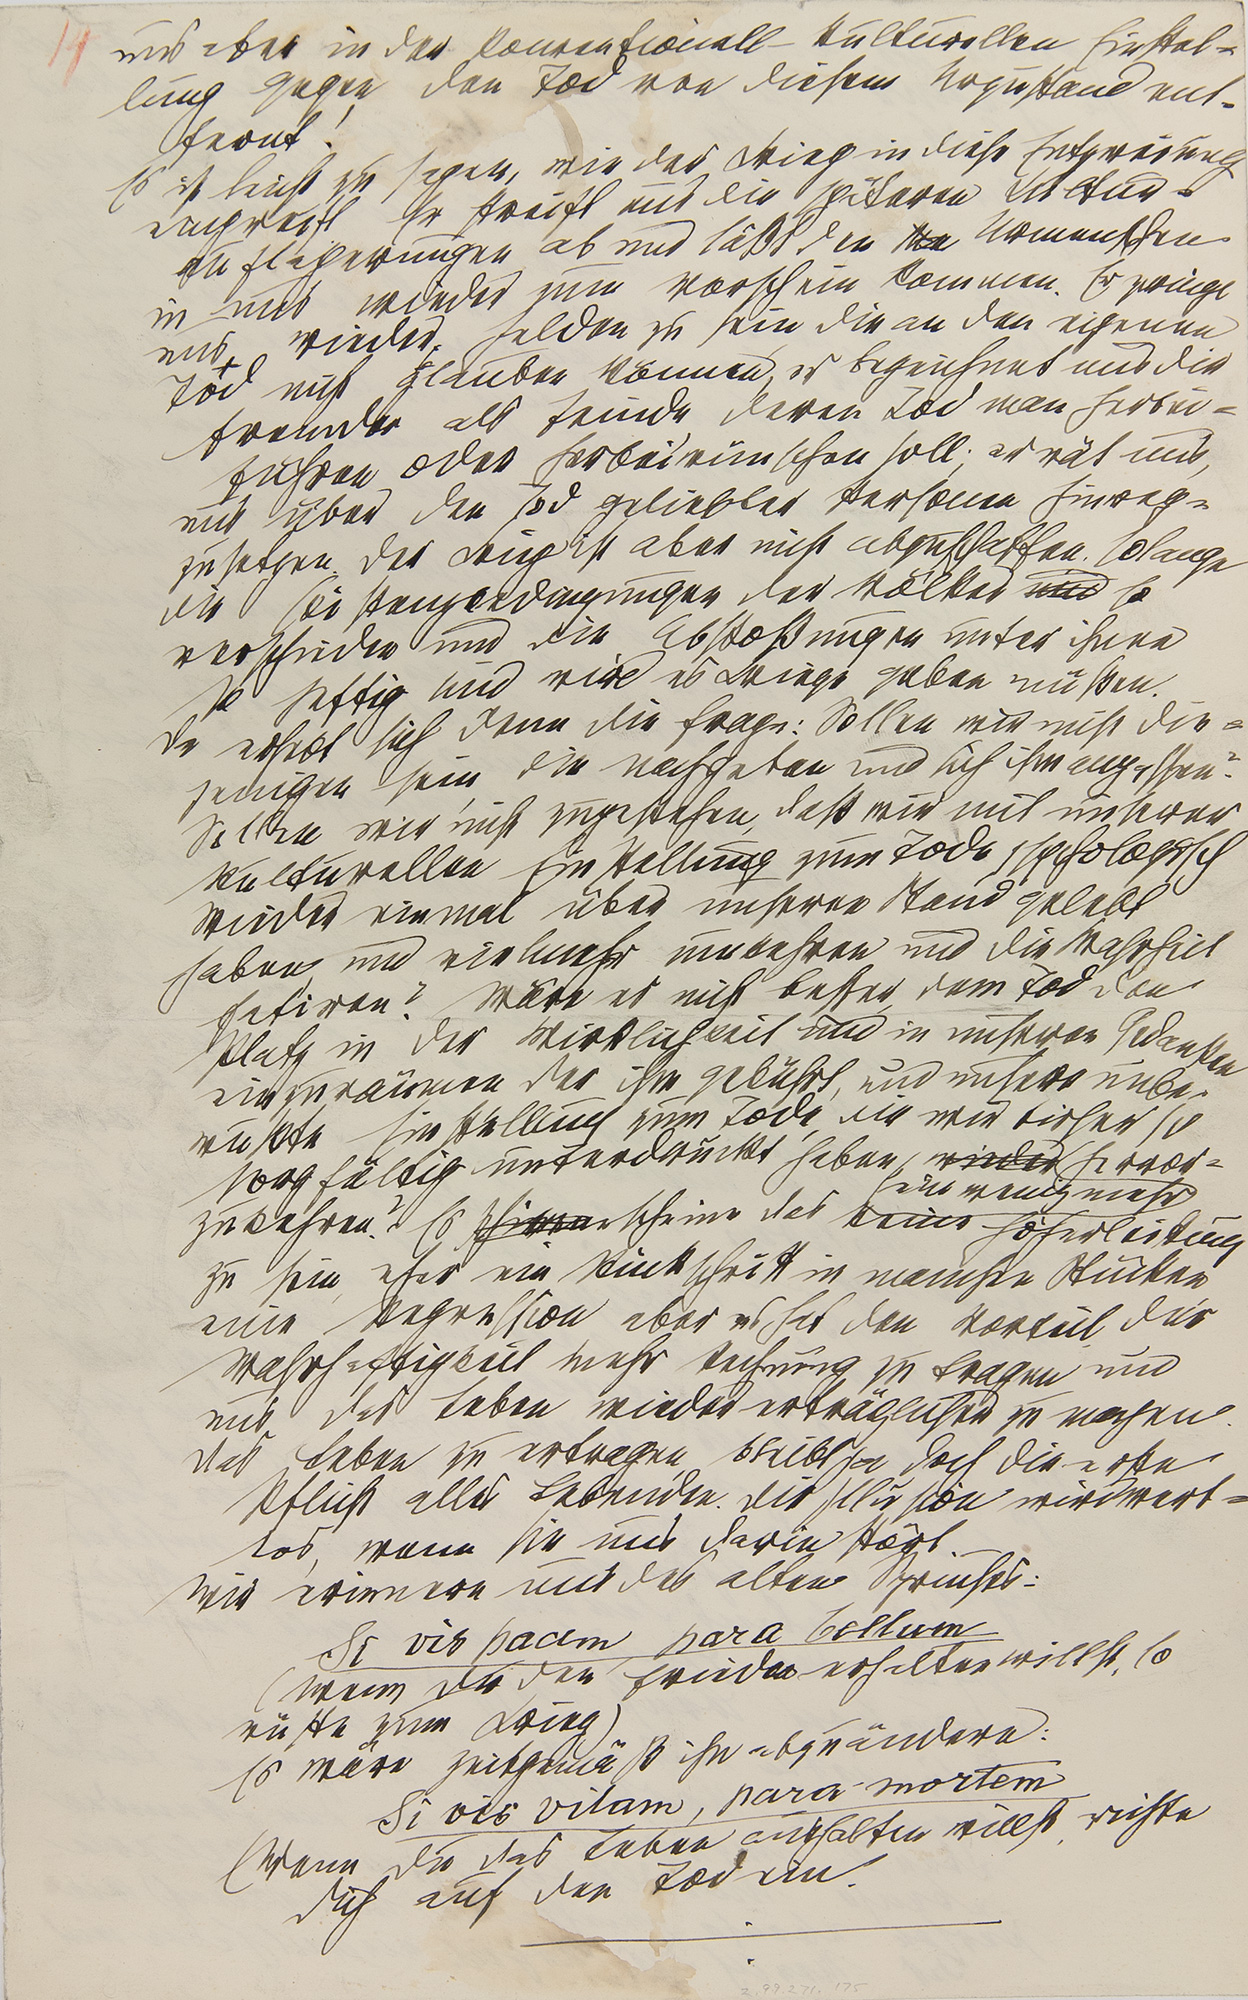 14
uns aber in der konventionell-kulturellen Einstel-
lung gegen den Tod von diesem Urzustand ent-
fernt!
Es ist leicht zu sagen, wie der Krieg in diese Entzweiung
eingreift. Er streift uns die späteren Kultur-
auflagerungen ab und läßt den Urmenschen
in uns wieder zum Vorschein kommen. Er zwingt
uns wieder, Helden zu sein, die an den eigenen
Tod nicht glauben können, er bezeichnet uns die
Fremden als Feinde, deren Tod man herbei-
führen oder herbeiwünschen soll; er rät uns,
uns über den Tod geliebter Personen hinweg-
zusetzen. Der Krieg ist aber nicht abzuschaffen. Solange
die Existenzbedingungen der Völker und so
verschieden und die Abstoßungen unter ihnen
so heftig sind wird es Kriege geben müßen.
Da erhebt sich denn die Frage: Sollen wir nicht die-
jenigen sein, die nachgeben und sich ihm anpassen?
Sollen wir nicht zugestehen, daß wir mit unserer
kulturellen Einstellung zum Tode psychologisch
wieder einmal über unseren Stand gelebt
haben, und vielmehr umkehren und die Wahrheit
fatiren? Wäre es nicht besser, dem Tod den
Platz in der Wirklichkeit und in unseren Gedanken
einzuräumen der ihm gebührt, und unsere unbe-
wußte Einstellung zum Tode, die wir bisher so
sorgfältig unterdrückt haben, wieder hervor-
ein wenig mehr
zukehren? Es scheint das keine Höherleistung
zu sein, eher ein Rückschritt in manchen Stücken
eine Regression aber es hat den Vorteil, der
Wahrhaftigkeit mehr Rechnung zu tragen und
uns das Leben wieder erträglicher zu machen.
Das Leben zu ertragen bleibt ja doch die erste
Pflicht aller Lebenden. Die Illusion wird wert-
los, wenn sie uns darin stört.
Wir erinnern uns des alten Spruches:
Si vis pacem para bellum
(Wenn du den Frieden erhalten willst, so
rüste zum Krieg)
Es wäre zeitgemäß ihn abzuändern:
Si vis vitam, para mortem
(Wenn du das Leben aushalten willst, richte
dich auf den Tod ein.
Z.99.271.175